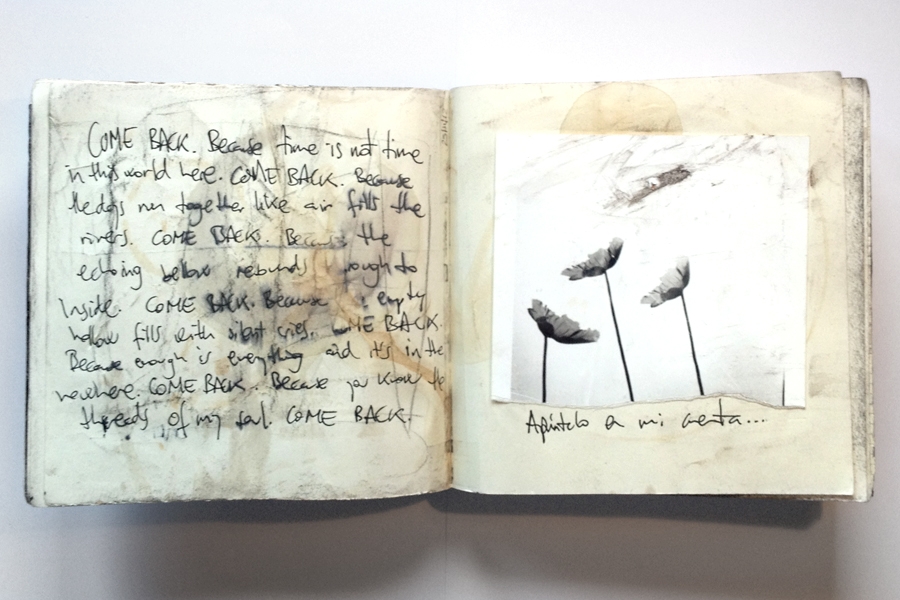 COME BACK. Because time is not time
in this world here. COME BACK. Because
the days run together like air fills the
rivers. COME BACK. Because the
echoing bellow rebounds to
inside. COME BACK. Because empty
hollow fills with silent cries. COME BACK.
Because enough is everything and it's in the
nowhere. COME BACK. Because you know the
threads of my soul. COME BACK.
Apúntelo a mi cuenta...